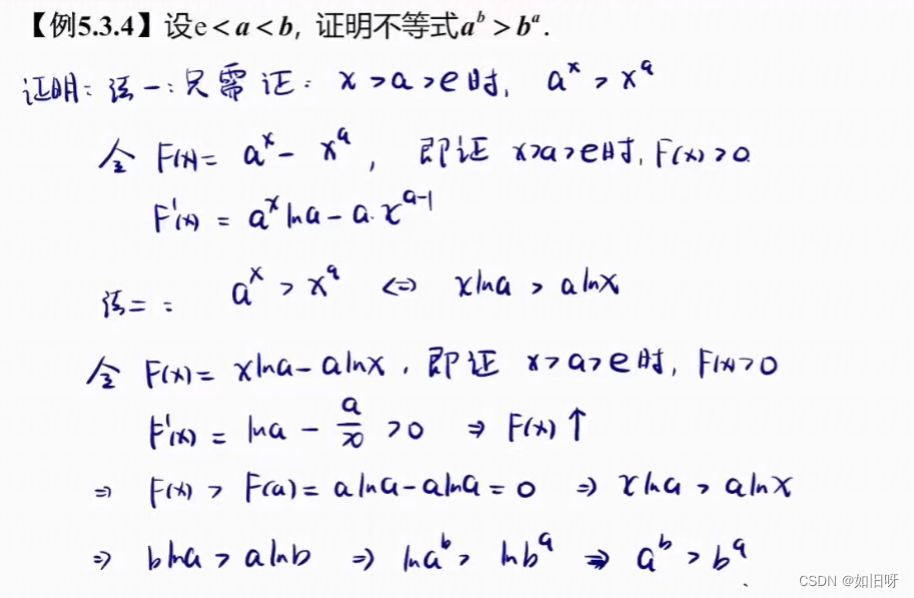 【例5.3.4】设e < a < b, 证明不等式a^b > b^a.
证明: 法一: 只需证: x>a>e时, a^x > x^a
令 F(x) = a^x - x^a, 即证 x>a>e时, F(x)>0
F'(x) = a^x lna - a·x^(a-1)
法二: a^x > x^a ⇔ xlna > alnx
令 F(x) = xlna - alnx, 即证 x>a>e时, F(x)>0
F'(x) = lna - a/x >0 ⇒ F(x)↑
⇒ F(x) > F(a) = alna - alna = 0 ⇒ xlna > alnx
⇒ blna > alnb ⇒ lna^b > lnb^a ⇒ a^b > b^a
CSDN @如旧呀